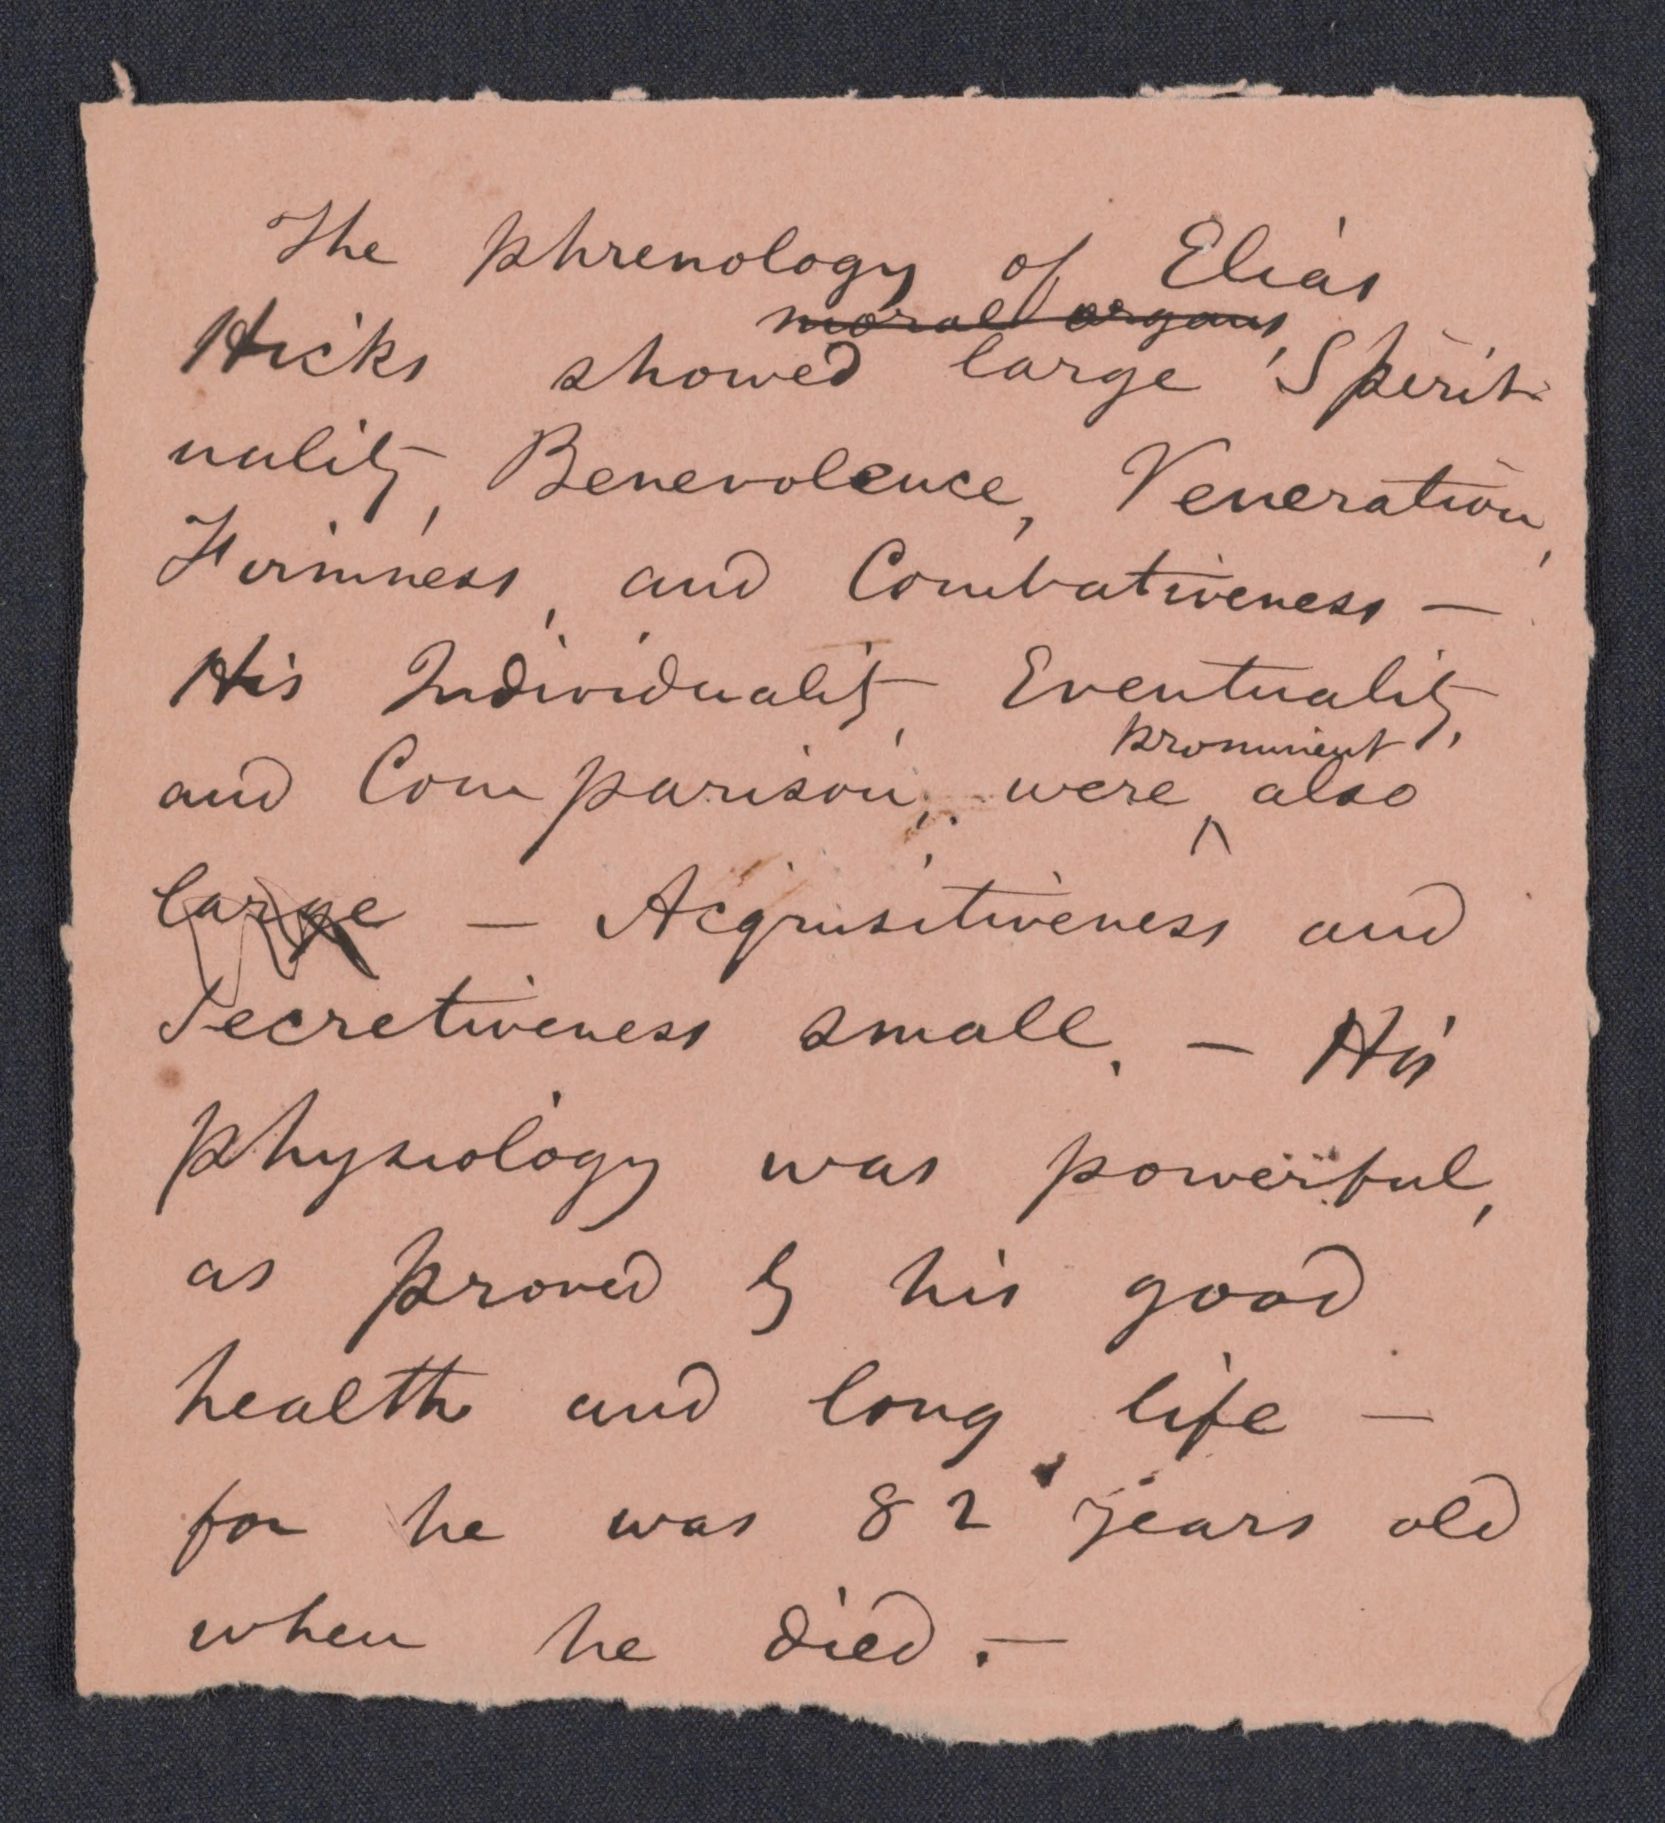 The phrenology of Elias
moral organs
Hicks showed large Spirit-
uality, Benevolence, Veneration,
Firmness, and Combativeness —
His Individuality, Eventuality,
prominent
and Comparison, were ^ also
large — Acqusitiveness and
Secretiveness small. — His
physiology was powerful,
as proved by his good
health and long life —
for he was 82 years old
when he died. —